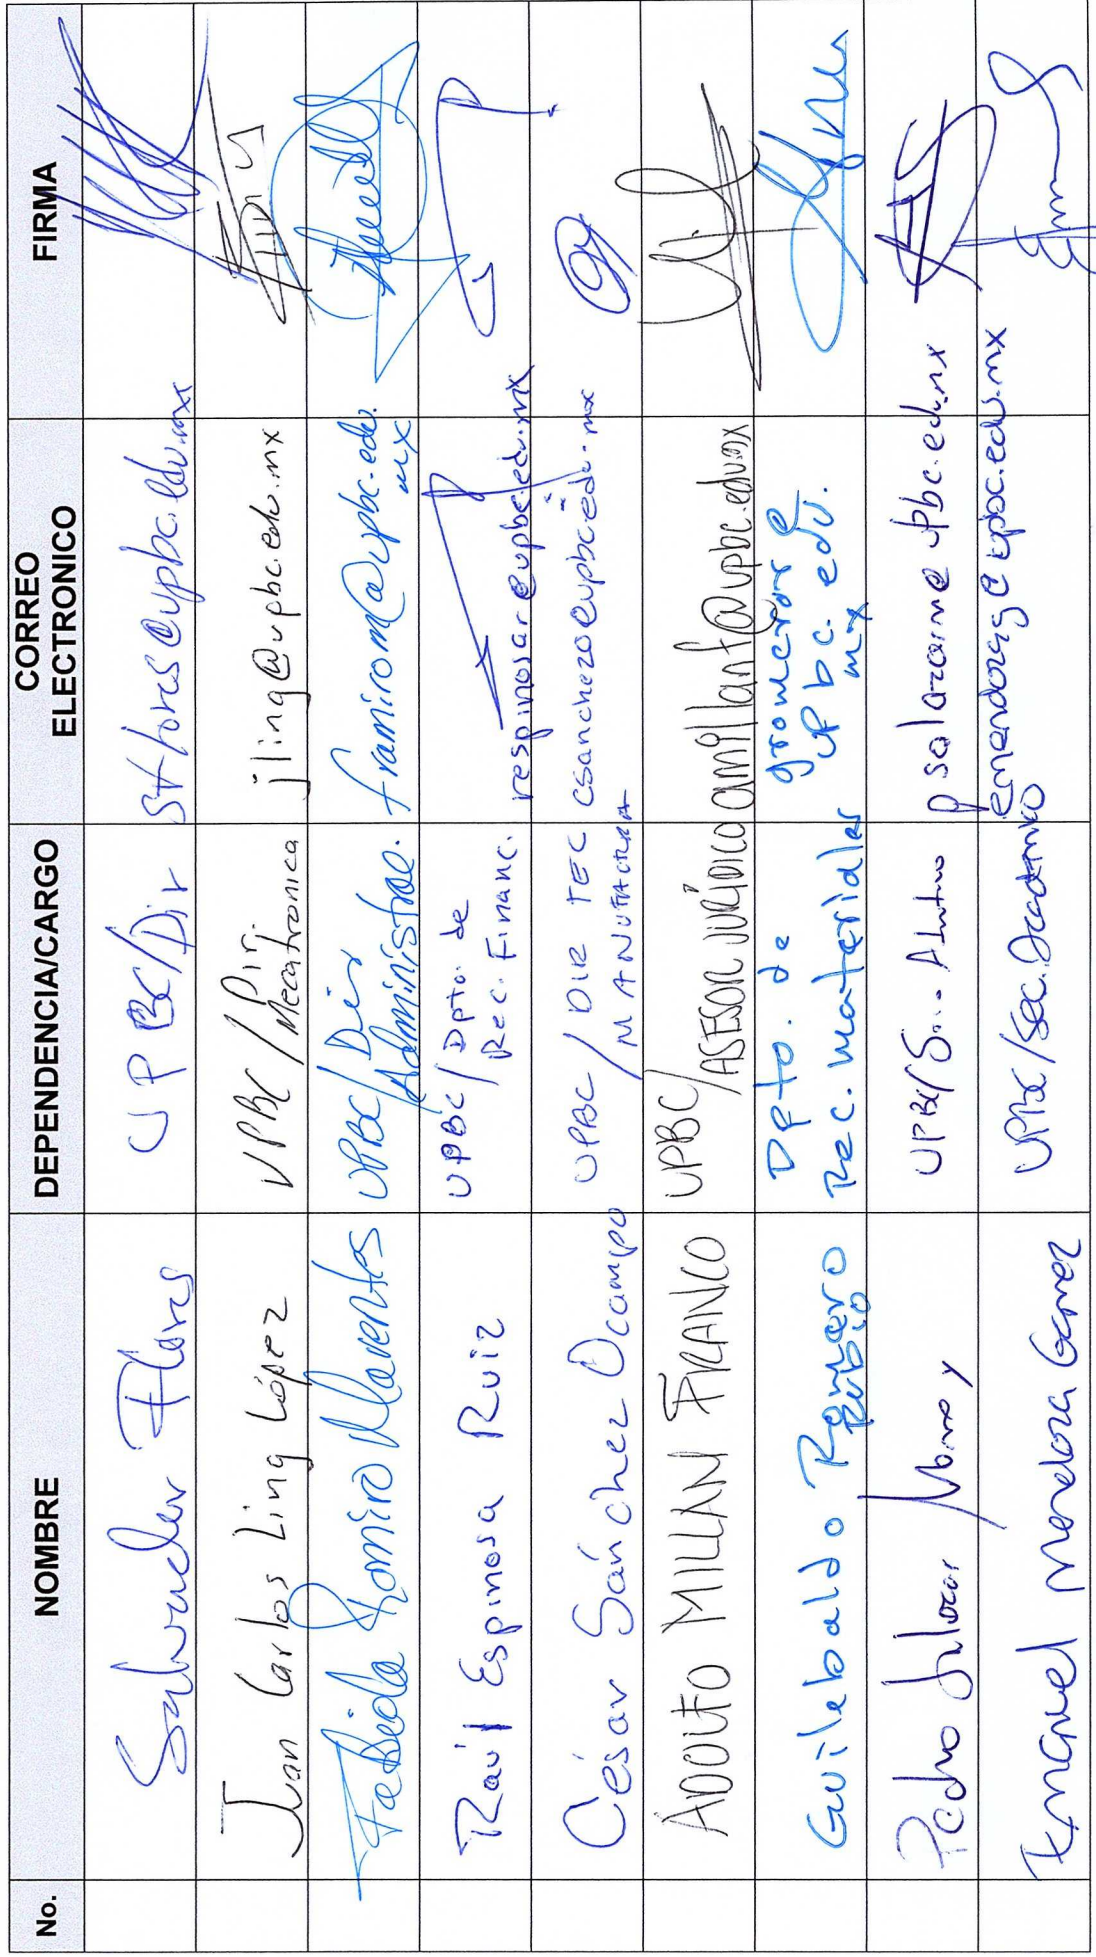 No. NOMBRE DEPENDENCIA/CARGO CORREO ELECTRONICO FIRMA
Salvador Flores UPBC/Dir sflores@upbc.edu.mx
Juan Carlos Ling López UPBC/Dir. Mecatronica jling@upbc.edu.mx
Fabiola Ramiro Marentes UPBC/Dir Administrac. framirom@upbc.edu.mx
Raúl Espinosa Ruiz UPBC/Dpto. de Rec. Financ. respinosar@upbc.edu.mx
César Sánchez Ocampo UPBC/DIR TEC MANUFACTURA csanchezo@upbc.edu.mx
ADOLFO MILLAN FRANCO UPBC/ASESOR JURÍDICO amillanf@upbc.edu.mx
Guilebaldo Romero Rubio Dpto. de Rec. materiales gromeror@upbc.edu.mx
Pedro Salazar UPBC/ psalazarm@upbc.edu.mx
Emanuel Mendoza Gamez UPBC/Sec. Academico emendozag@upbc.edu.mx